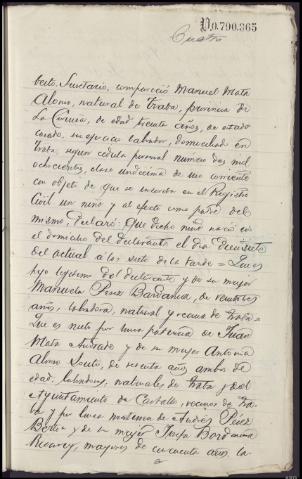 P0.790.865
Cuatro
Secretario, compareció Manuel Mata
Alonso, natural de Traba, provincia de
La Coruña, de edad treinta años, de estado
casado, su ejercicio labrador, domiciliado en
Traba, segun cédula personal numero dos mil
ochocientos, clase undécima de uso corriente
con objeto de que se inscriba en el Registro
Civil un niño y al efecto como padre del
mismo, declaró: Que dicho niño nació en
el domicilio del declarante el dia diecisiete
del actual a las siete de la tarde = Que es
hijo legitimo del declarante, y de su mujer
Manuela Perez Bardanca, de
años, labradora, natural y vecina de Traba =
Que es nieto por linea paterna de Juan
Mata Andrade y de su mujer Antonia
Alonso de sesenta años, ambos de
edad, labradores, naturales de Traba y del
Ayuntamiento de vecinos de
y por linea materna de Andrés Perez
y de su mujer Josefa Bardanca
mayores de cincuenta años, la-